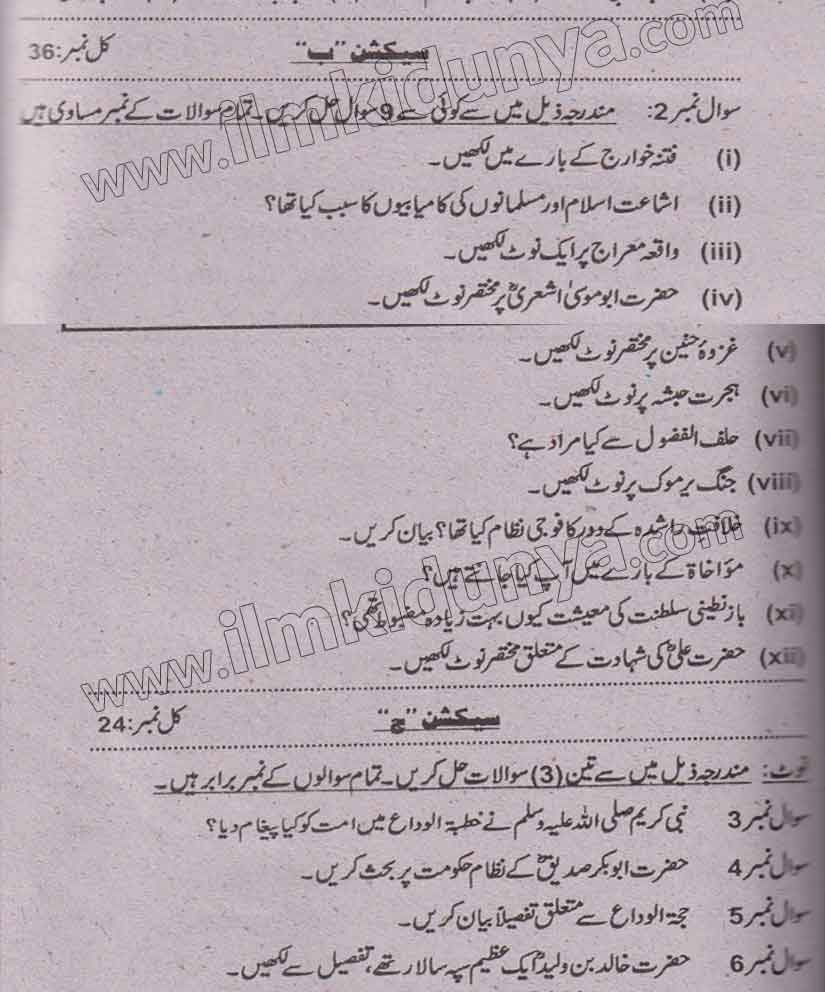 سیکشن "ب" کل نمبر: 36
سوال نمبر 2: مندرجہ ذیل میں سے کوئی سے 9 سوال حل کریں۔ تمام سوالات کے نمبر مساوی ہیں
(i) فتنہ خوارج کے بارے میں لکھیں۔
(ii) اشاعت اسلام اور مسلمانوں کی کامیابیوں کا سبب کیا تھا؟
(iii) واقعہ معراج پر ایک نوٹ لکھیں۔
(iv) حضرت ابو موسیٰ اشعریؓ پر مختصر نوٹ لکھیں۔
(v) غزوۂ حنین پر مختصر نوٹ لکھیں۔
(vi) ہجرت حبشہ پر نوٹ لکھیں۔
(vii) حلف الفضول سے کیا مراد ہے؟
(viii) جنگ یرموک پر نوٹ لکھیں۔
(ix) خلافتِ راشدہ کے دور کا فوجی نظام کیا تھا؟ بیان کریں۔
(x) مؤاخاۃ کے بارے میں آپ کیا جانتے ہیں؟
(xi) بازنطینی سلطنت کی معیشت کیوں بہت زیادہ مضبوط تھی؟
(xii) حضرت علیؓ کی شہادت کے متعلق مختصر نوٹ لکھیں۔
سیکشن "ج" کل نمبر: 24
نوٹ: مندرجہ ذیل میں سے تین (3) سوالات حل کریں۔ تمام سوالوں کے نمبر برابر ہیں۔
سوال نمبر 3 نبی کریم صلی اللہ علیہ وسلم نے خطبۃ الوداع میں امت کو کیا پیغام دیا؟
سوال نمبر 4 حضرت ابوبکر صدیقؓ کے نظام حکومت پر بحث کریں۔
سوال نمبر 5 حجۃ الوداع سے متعلق تفصیلاً بیان کریں۔
سوال نمبر 6 حضرت خالد بن ولیدؓ ایک عظیم سپہ سالار تھے، تفصیل سے لکھیں۔
www.ilmkidunya.com
www.ilmkidunya.com